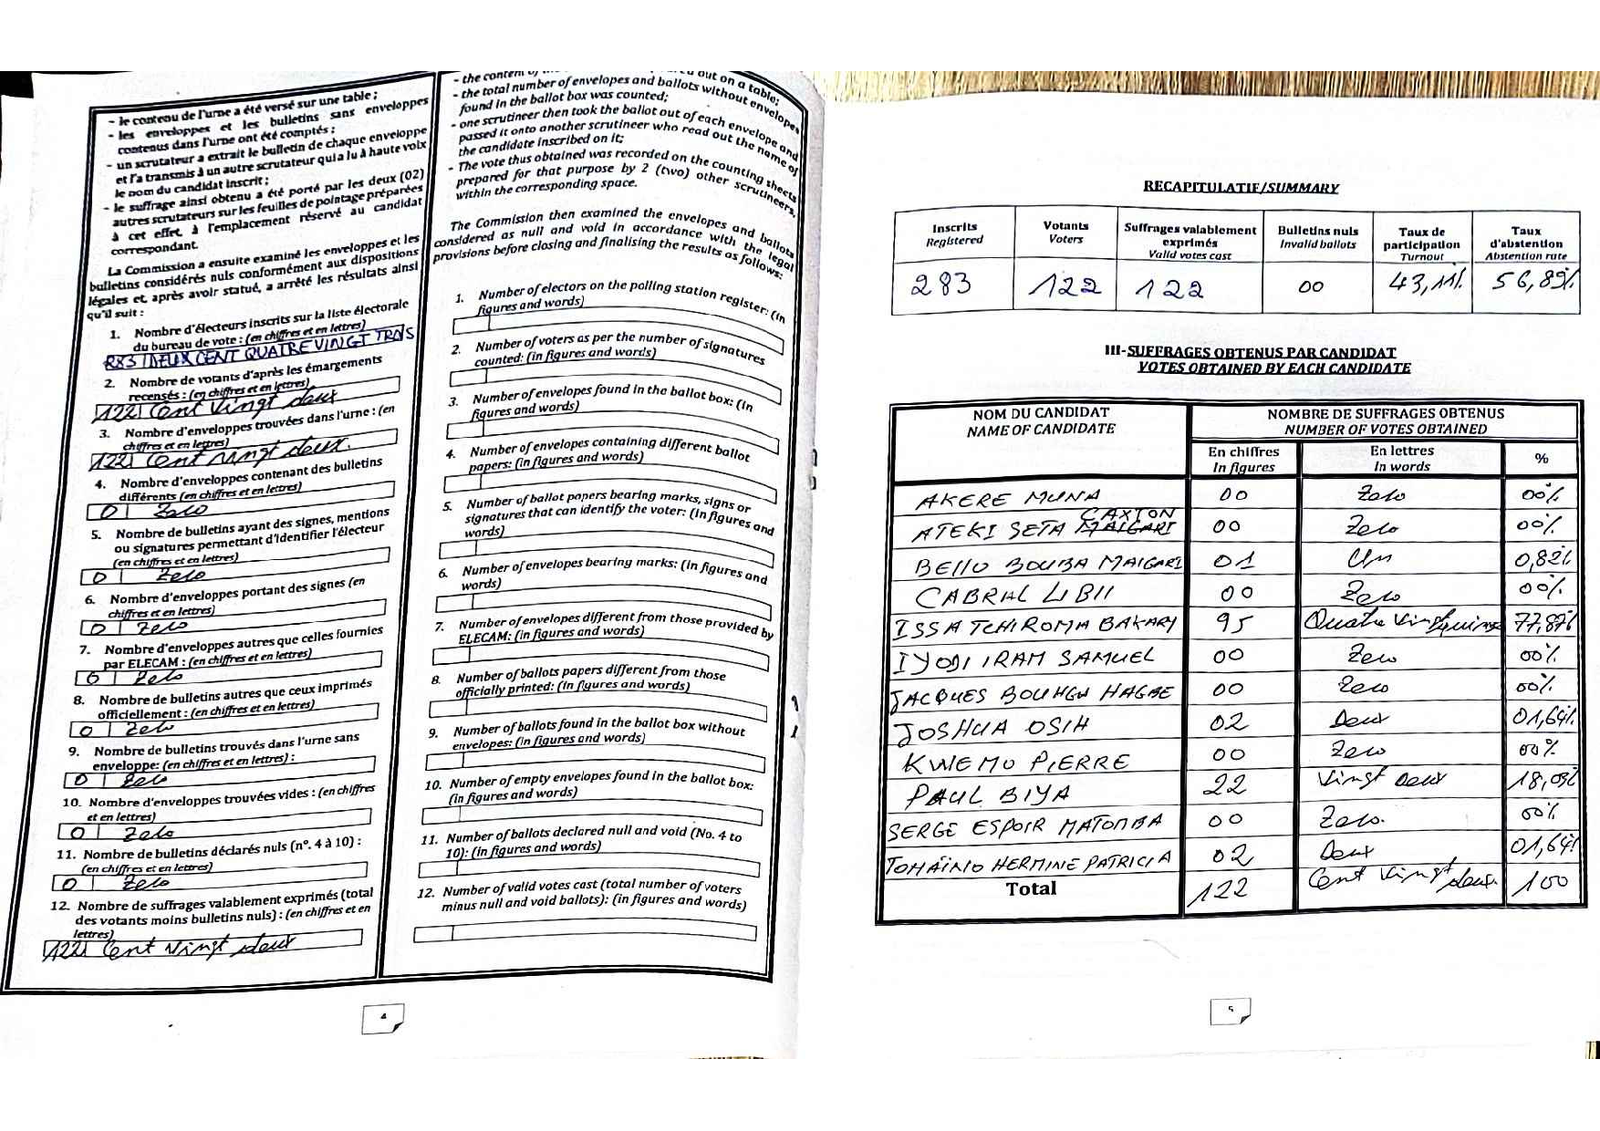 - le contenu de l'urne a été versé sur une table ;
- les enveloppes et les bulletins sans enveloppes
contenus dans l'urne ont été comptés ;
- un scrutateur a extrait le bulletin de chaque enveloppe
et l'a transmis à un autre scrutateur qui a lu à haute voix
le nom du candidat inscrit ;
- le suffrage ainsi obtenu a été porté par les deux (02)
autres scrutateurs sur les feuilles de pointage préparées
à cet effet, à l'emplacement réservé au candidat
correspondant.
La Commission a ensuite examiné les enveloppes et les
bulletins considérés nuls conformément aux dispositions
légales et, après avoir statué, a arrêté les résultats ainsi
qu'il suit :
1. Nombre d'électeurs inscrits sur la liste électorale
du bureau de vote : (en chiffres et en lettres)
283 DEUX CENT QUATRE VINGT TROIS
2. Nombre de votants d'après les émargements
recensés : (en chiffres et en lettres)
122 Cent Vingt deux
3. Nombre d'enveloppes trouvées dans l'urne : (en
chiffres et en lettres)
122 Cent vingt deux.
4. Nombre d'enveloppes contenant des bulletins
différents (en chiffres et en lettres)
0 Zelo
5. Nombre de bulletins ayant des signes, mentions
ou signatures permettant d'identifier l'électeur
(en chiffres et en lettres)
0 Zelo
6. Nombre d'enveloppes portant des signes (en
chiffres et en lettres)
0 Zelo
7. Nombre d'enveloppes autres que celles fournies
par ELECAM : (en chiffres et en lettres)
0 Zelo
8. Nombre de bulletins autres que ceux imprimés
officiellement : (en chiffres et en lettres)
0 Zelo
9. Nombre de bulletins trouvés dans l'urne sans
enveloppe: (en chiffres et en lettres) :
0 Zelo
10. Nombre d'enveloppes trouvées vides : (en chiffres
et en lettres)
0 Zelo
11. Nombre de bulletins déclarés nuls (n°. 4 à 10) :
(en chiffres et en lettres)
0 Zelo
12. Nombre de suffrages valablement exprimés (total
des votants moins bulletins nuls) : (en chiffres et en
lettres)
122 Cent vingt deux
- the content of out on a table;
- the total number of envelopes and ballots without envelopes
found in the ballot box was counted;
- one scrutineer then took the ballot out of each envelope and
passed it onto another scrutineer who read out the name of
the candidate inscribed on it;
- The vote thus obtained was recorded on the counting sheets
prepared for that purpose by 2 (two) other scrutineers,
within the corresponding space.
The Commission then examined the envelopes and ballots
considered as null and void in accordance with the legal
provisions before closing and finalising the results as follows:
1. Number of electors on the polling station register: (in
figures and words)
2. Number of voters as per the number of signatures
counted: (in figures and words)
3. Number of envelopes found in the ballot box: (in
figures and words)
4. Number of envelopes containing different ballot
papers: (in figures and words)
5. Number of ballot papers bearing marks, signs or
signatures that can identify the voter: (in figures and
words)
6. Number of envelopes bearing marks: (in figures and
words)
7. Number of envelopes different from those provided by
ELECAM: (in figures and words)
8. Number of ballots papers different from those
officially printed: (in figures and words)
9. Number of ballots found in the ballot box without
envelopes: (in figures and words)
10. Number of empty envelopes found in the ballot box:
(in figures and words)
11. Number of ballots declared null and void (No. 4 to
10): (in figures and words)
12. Number of valid votes cast (total number of voters
minus null and void ballots): (in figures and words)
4
RECAPITULATIF/SUMMARY
Inscrits Registered Votants Voters Suffrages valablement exprimés Valid votes cast Bulletins nuls Invalid ballots Taux de participation Turnout Taux d'abstention Abstention rate
283 122 122 00 43,11% 56,89%
III-SUFFRAGES OBTENUS PAR CANDIDAT
VOTES OBTAINED BY EACH CANDIDATE
NOM DU CANDIDAT NOMBRE DE SUFFRAGES OBTENUS
NAME OF CANDIDATE NUMBER OF VOTES OBTAINED
En chiffres En lettres %
In figures In words
AKERE MUNA 00 Zelo 00%
CAXTON
ATEKI SETA MAIGARI 00 Zelo 00%
BELLO BOUBA MAIGARI 01 Un 0,82%
CABRAL LIBII 00 Zelo 00%
ISSA TCHIROMA BAKARY 95 Quatre Vingt quinze 77,87%
IYODI IRAM SAMUEL 00 Zelo 00%
JACQUES BOUHGU HAGBE 00 Zelo 00%
JOSHUA OSIH 02 Deux 01,64%
KWEMO PIERRE 00 Zelo 00%
PAUL BIYA 22 Vingt Deux 18,03%
SERGE ESPOIR MATOMBA 00 Zelo. 00%
TOMAÏNO HERMINE PATRICIA 02 Deux 01,64%
Total 122 Cent Vingt deux. 100
5